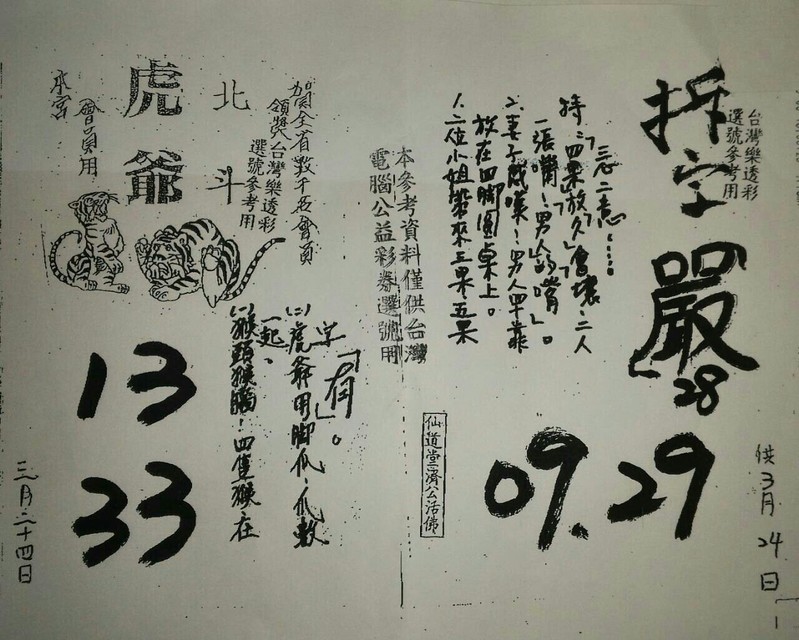 台灣樂透彩
選號參考用
拆字
嚴
28
09.29
供3月24日
三心二意……
持、「四果放久」會壞、二人
一張嘴!「男人的嘴」。
2.妻子感嘆!男人早靠
放在四脚圓桌上。
1.二位小姐帶來三果五果
仙道堂濟公活佛
本參考資料僅供台灣
電腦公益彩券選號用
賀全省數千名會員
領獎台灣樂透彩
選號參考用
北斗
虎爺
會員用
本宮
字「有」。
(二)虎爺用脚爪、爪數
一起、
(一)猴頭猴腦!四隻猴在
13
33
三月二十四日